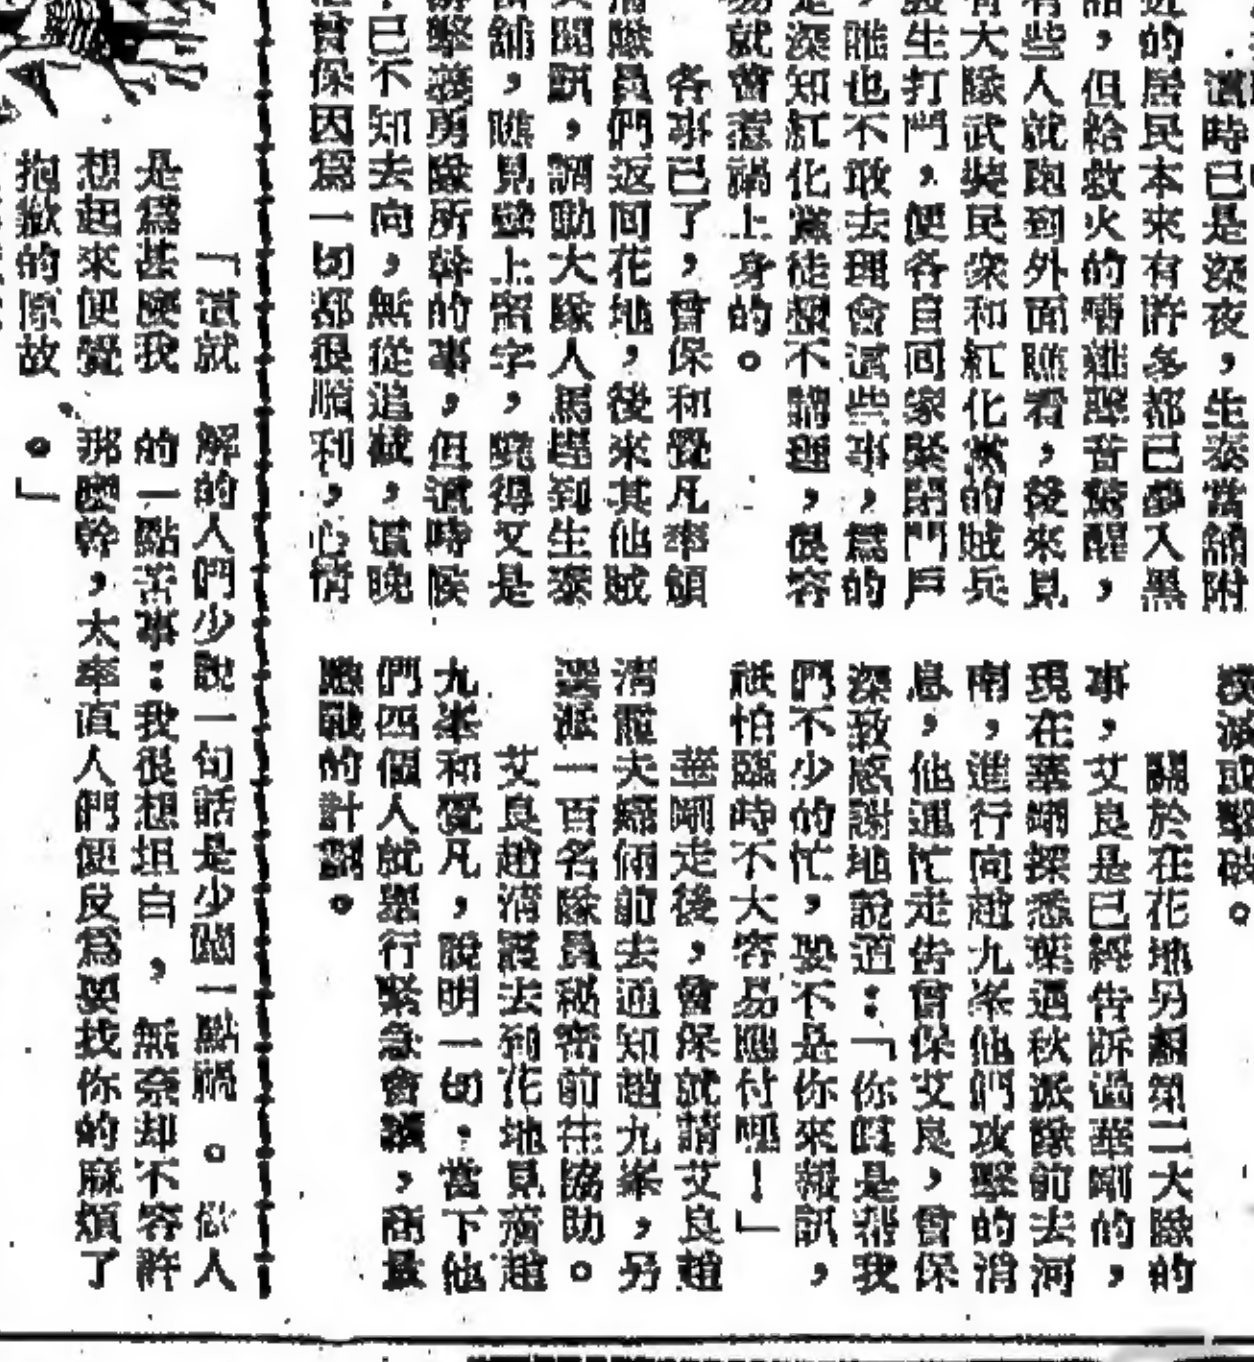 這時已是深夜，生泰當舖附
近的居民本來有許多都已夢入黑
話，但給救火的嘈雜聲音驚醒，
有些人就跑到外面瞧看，後來見
有大隊武裝民衆和紅化黨的賊兵
發生打鬥，便各自回家緊閉門戶
，誰也不敢去理會這些事，爲的
是深知紅化黨徒蠻不講理，很容
易就會惹禍上身的。
各事已了，曾保和覺凡率領
隊員們返回花地，後來其他賊
聞訊，調動大隊人馬趕到生泰
當舖，瞧見壁上留字，曉得又是
游擊義勇隊所幹的事，但這時候
，已不知去向，無從追截，這晚
曾保因爲一切都很順利，心情
滅或擊破。
關於在花地另編第二大隊的
事，艾良是已經告訴過華剛的，
現在華剛探悉葉遇秋派隊前去河
南，進行向趙九峯他們攻擊的消
息，他連忙走告曾保艾良，曾保
深致感謝地說道：「你旣是幫我
們不少的忙，要不是你來報訊，
祇怕臨時不大容易應付哩！」
華剛走後，曾保就請艾良趙
清霞夫婦倆前去通知趙九峯，另
選派一百名隊員秘密前往協助。
艾良趙清霞去到花地見着趙
九峯和覺凡，說明一切，當下他
們四個人就舉行緊急會議，商量
應戰的計劃。
「這就
是爲甚麼我
想起來便覺
抱歉的原故
解的人們少說一句話是少闖一點禍。做人
的一點苦事：我很想坦白，無奈却不容許
那麼幹，太率直人們便反爲要找你的麻煩了
。」